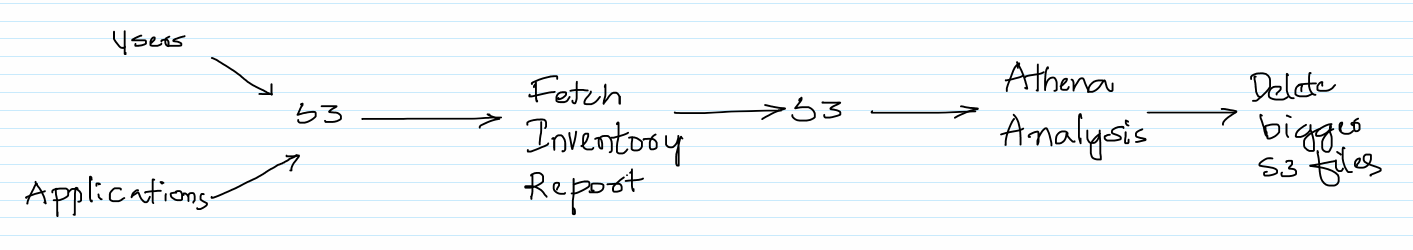 Users
Applications
S3
Fetch
Inventory
Report
S3
Athena
Analysis
Delete
bigger
S3 files